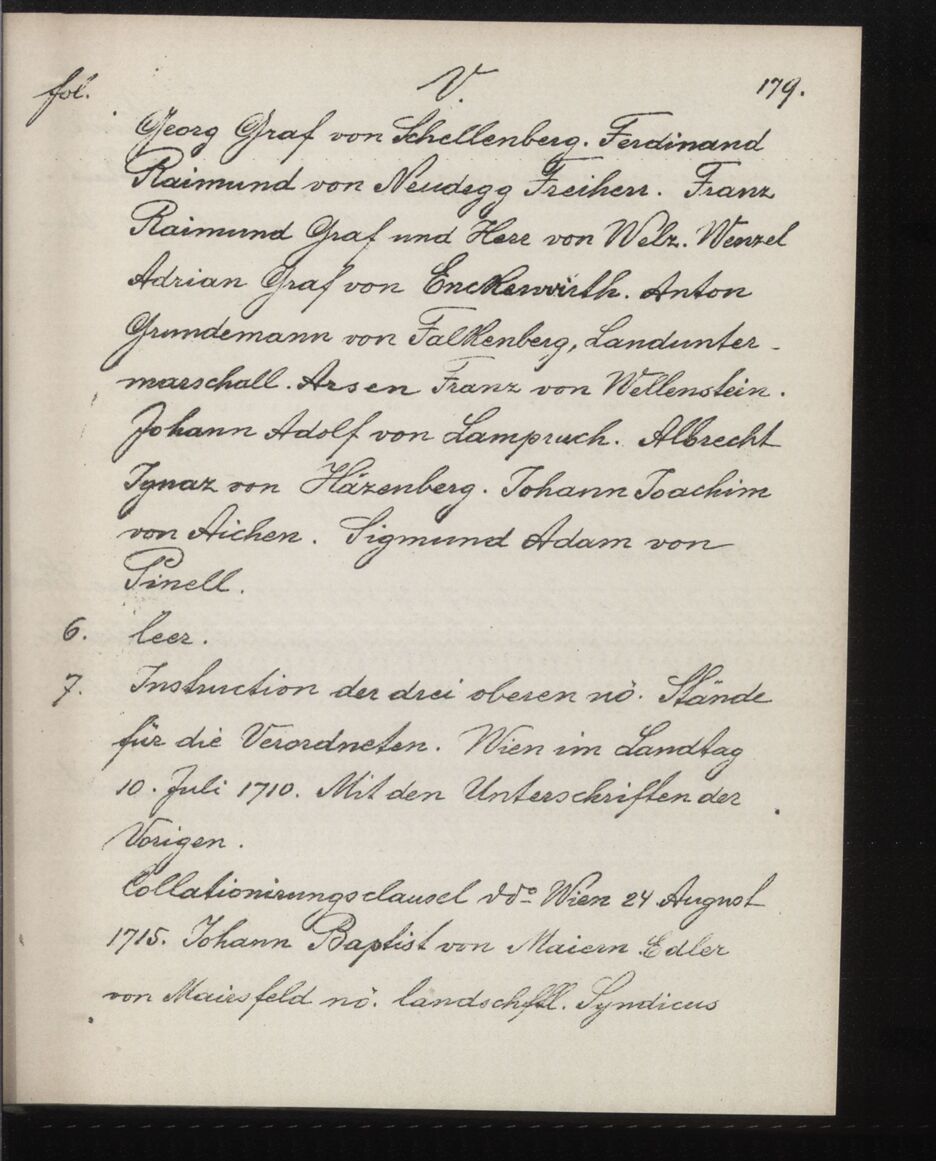 fol. V 179.
Georg Graf von Schellenberg. Ferdinand
Raimund von Neudegg Freiherr. Franz
Raimund Graf und Herr von Welz. Wenzel
Adrian Graf von Enckewirth. Anton
Grundemann von Falkenberg, Landunter-
marschall. Arsen Franz von Wellenstein.
Johann Adolf von Lampruch. Albrecht
Ignaz von Häzenberg. Johann Joachim
von Aichen. Sigmund Adam von
Pinell.
6. leer.
7. Instruction der drei oberen nö. Stände
für die Verordneten. Wien im Landtag
10. Juli 1710. Mit den Unterschriften der
Vorigen.
Collationirungsclausel ddo Wien 24 August
1715. Johann Baptist von Maiern Edler
von Mairsfeld nö. landschftl. Syndicus